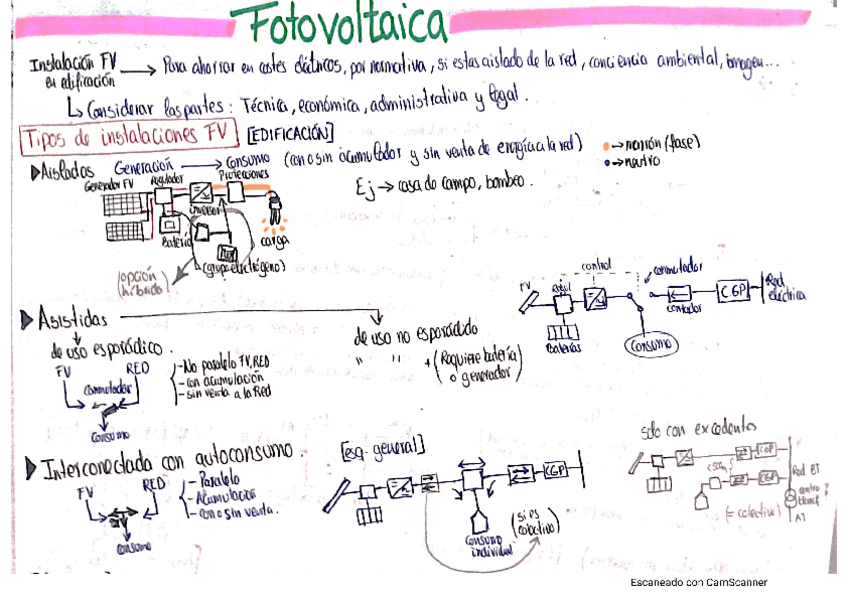 Fotovoltaica
Instalación FV en edificación → Para ahorrar en costes eléctricos, por normativa, si estas aislado de la red, conciencia ambiental, imagen...
↳ Considerar las partes: Técnica, económica, administrativa y legal.
Tipos de instalaciones FV [EDIFICACIÓN]
▶Aislados Generación → Consumo (con o sin acumulador y sin venta de energía a la red)
→ marrón (fase)
→ neutro
Ej → casa de campo, bombeo.
Generador FV
Regulador
Protecciones
Inversor
Batería
carga
(grupo electrógeno)
(opción híbrido)
control
conmutador
FV
Regul
Baterías
Consumo
contador
CGP
Red eléctrica
▶ Asistidas
de uso esporádico.
FV RED
Conmutador
Consumo
-No paralelo FV, RED
-con acumulación
-sin venta a la Red
de uso no esporádico
" " + (Requiere batería o generador)
▶ Interconectada con autoconsumo.
FV RED
consumo
- Paralelo
- Acumulación
- con o sin venta.
[esq. general]
CGP
Consumo individual
(si es colectivo)
solo con excedentes
CGP
CGP
(= colectivo)
Red BT
centro transf
AT
Escaneado con CamScanner